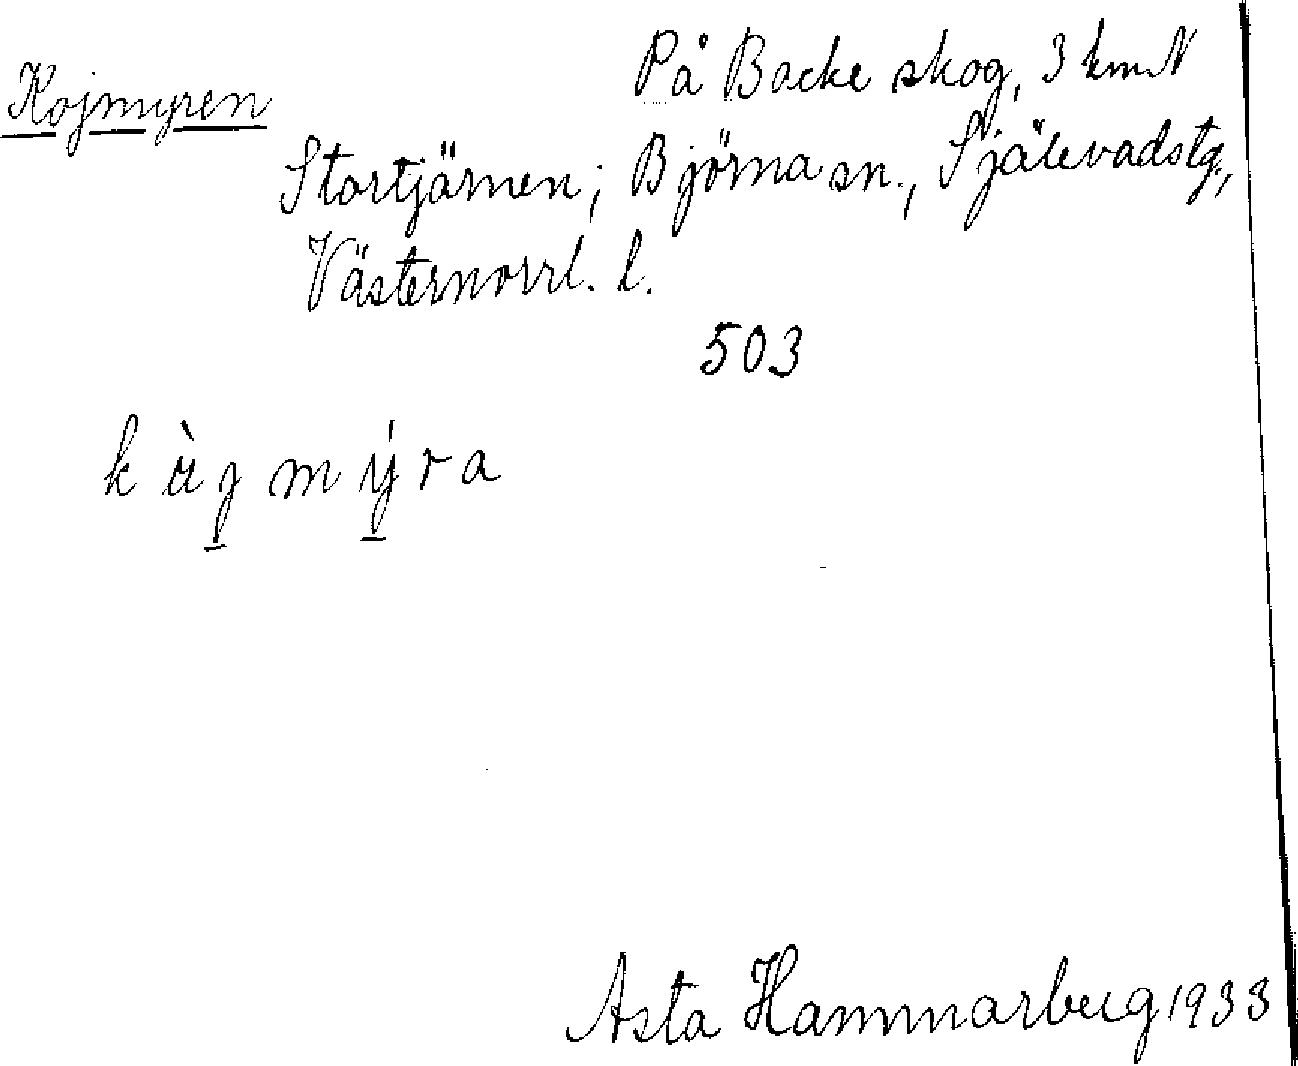 På Backe skog, 3 km N
Kojmyren
Stortjärnen; Björna sn., Själevadstg.,
Västernorrl. l.
503
myra
Asta Hammarberg 1933